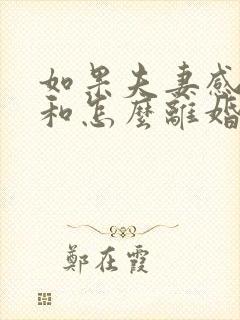 如果夫妻感
和怎麼離婚
鄭在霞